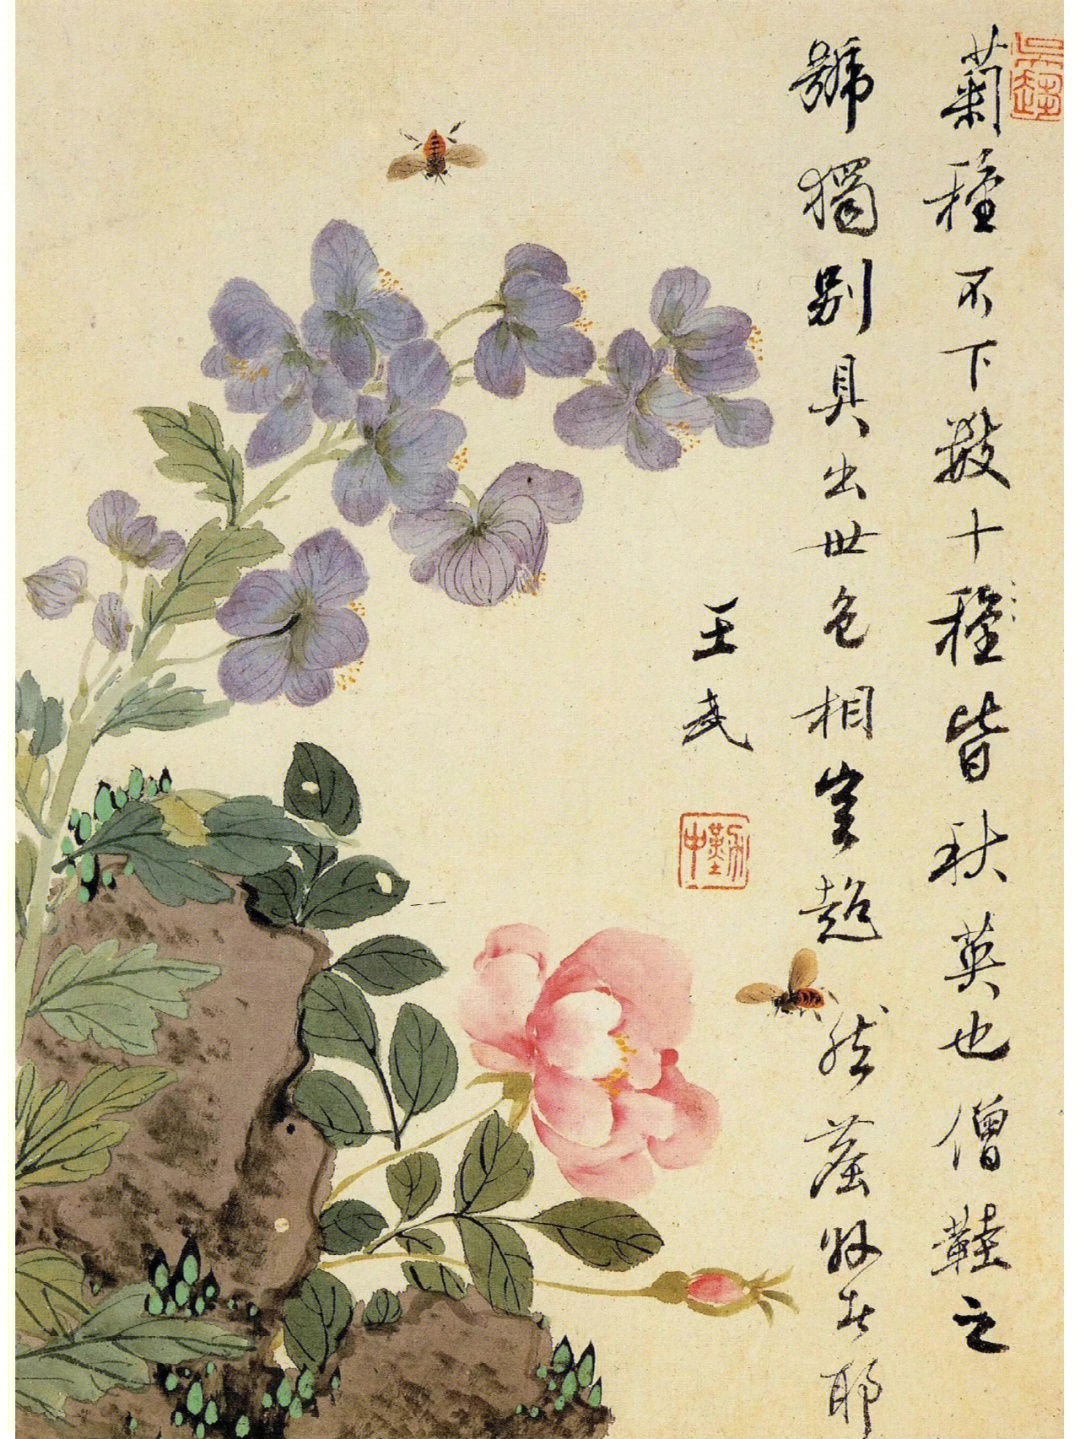 菊種不下數十種皆秋英也僧鞋之
號獨別具出世色相宜超然塵外者耶
王武
勤中